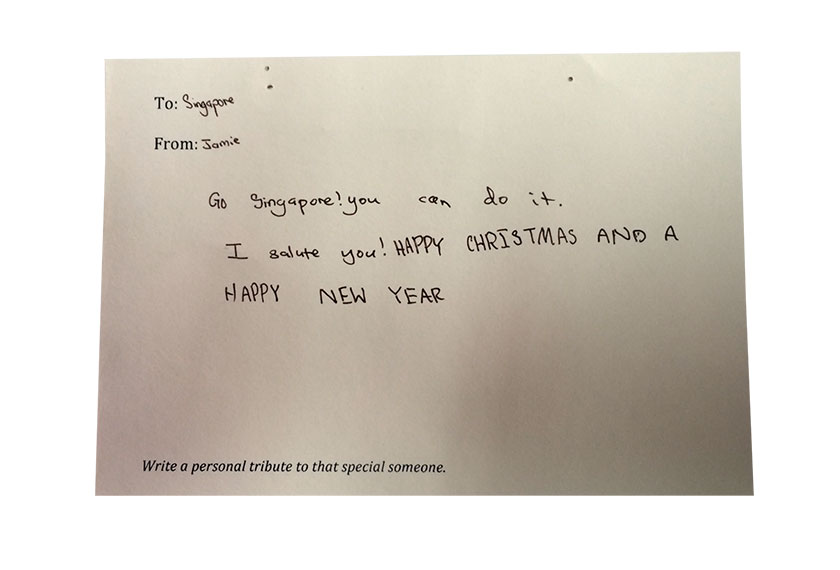 To: Singapore
From: Jamie
Go Singapore! you can do it.
I salute you! HAPPY CHRISTMAS AND A
HAPPY NEW YEAR
Write a personal tribute to that special someone.